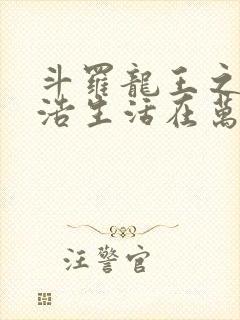 斗羅龍王之
浩生活在萬
汪警官